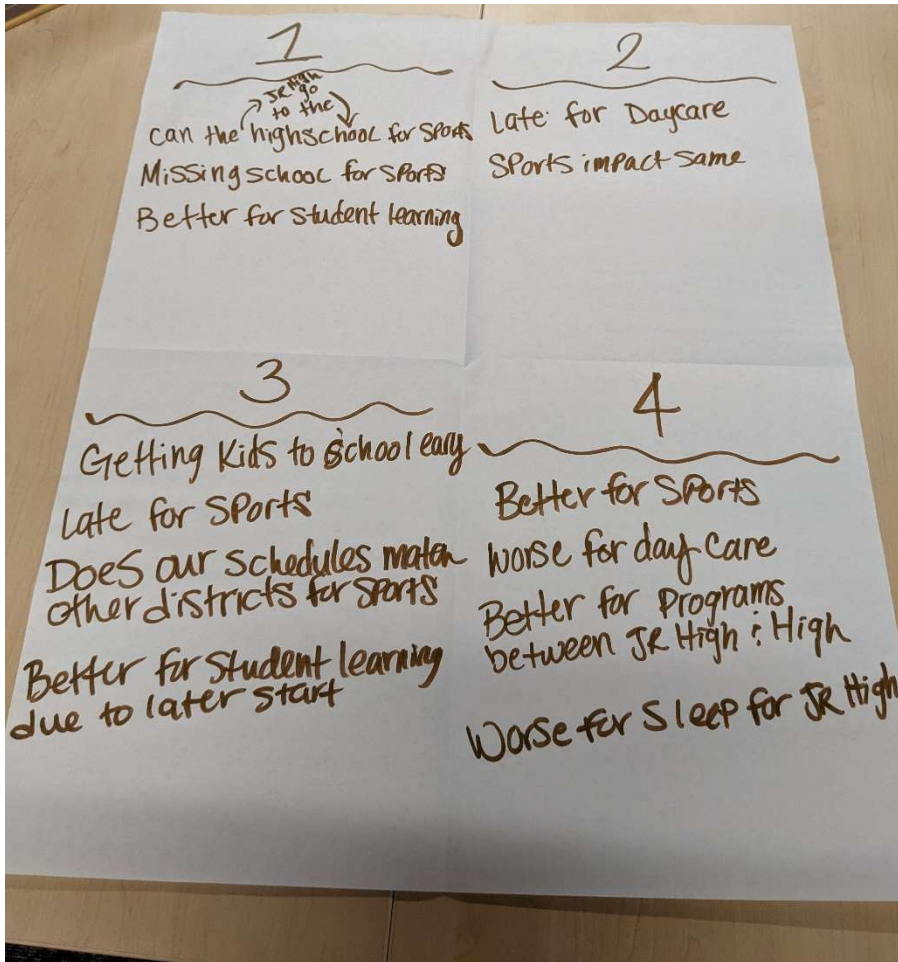 1
JR High go
to the
can the highschool for sports
Missing school for sports
Better for student learning
2
Late for Daycare
Sports impact same
3
Getting Kids to school eary
Late for sports
Does our schedules match
other districts for sports
Better for student learning
due to later start
4
Better for sports
worse for day care
Better for programs
between JR High & High
Worse for sleep for JR High